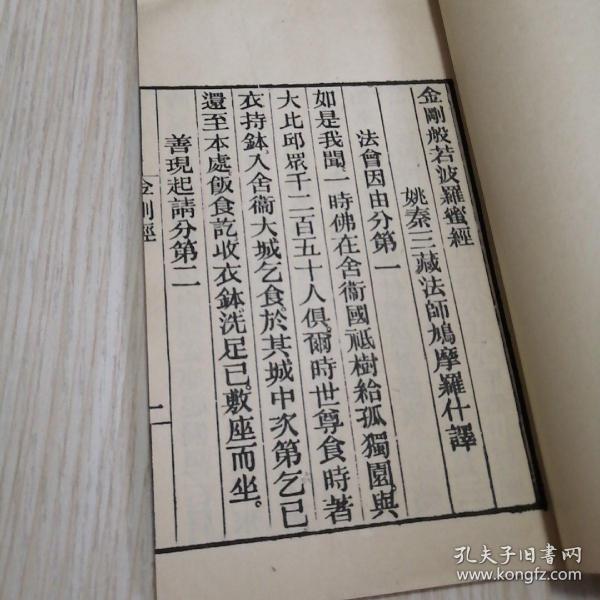 金剛般若波羅蜜經
姚秦三藏法師鳩摩羅什譯
法會因由分第一
如是我聞一時佛在舍衞國祇樹給孤獨園。與
大比邱眾千二百五十人俱。爾時世尊食時著
衣持鉢入舍衞大城乞食。於其城中次第乞已
還至本處。飯食訖收衣鉢。洗足已。敷座而坐。
善現起請分第二
金剛經
一
孔夫子旧书网
www.kongfz.com